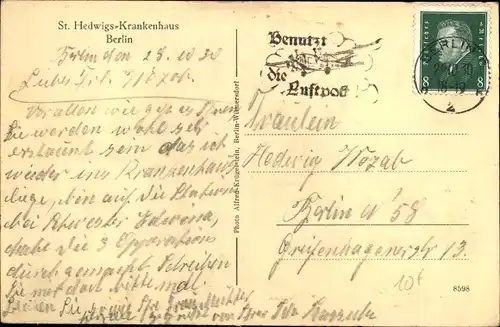 St. Hedwigs-Krankenhaus
Berlin
Berlin den 28. 10 30
Liebes Frl. Wozab.
Vor allem wie geht es Ihnen
Sie werden wohl sehr
erstaunt sein das ich
wieder ins Krankenhaus
liege, bin auf die Station
bei Schwester
habe die 3 Operation
durch gemacht. Schreiben
Sie mir doch bitte mal.
Seien Sie
gegrüsst von Ihrer Ida
Photo Alfred Krüger, Berlin-Wilmersdorf
Benutzt
die
Luftpost
BERLIN
30
2
8 8
Fräulein
Hedwig Wozab
Berlin N 58
Greifenhagenerstr 13.
8598